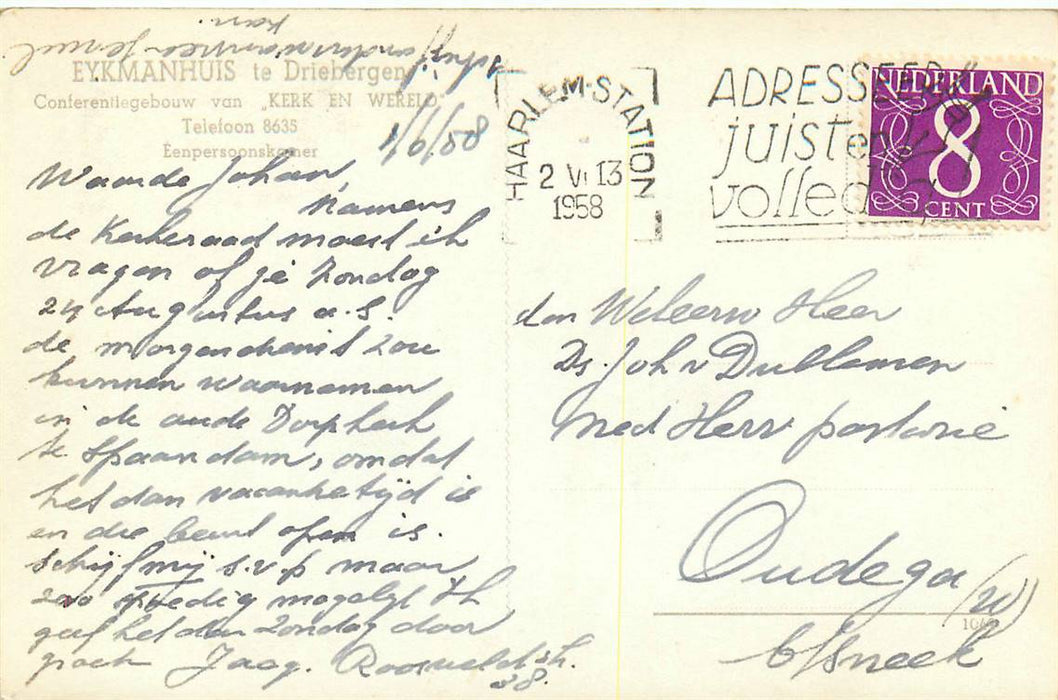 EYKMANHUIS te Driebergen
Conferentiegebouw van „KERK EN WERELD"
Telefoon 8635
Eenpersoonskamer
1/6/58
Waarde Johan,
Namens
de Kerkeraad moest ik
vragen of je Zondag
24 Augustus a.s.
de morgendienst zou
kunnen waarnemen
in de oude Dorpkerk
te Spaarndam, omdat
het dan vacantietijd is
en die beurt open is.
Schrijf mij s.v.p maar
zoo spoedig mogelijk
geef het dan Zondag door
Jaag.
38.
HAARLEM-STATION
2 VI 13
1958
ADRESSEER
juist en
volled
NEDERLAND
8
CENT
den Weleerw Heer
Ds. Joh v Dubbleman
Ned Herv pastorie
Oudega (W)
b/Sneek